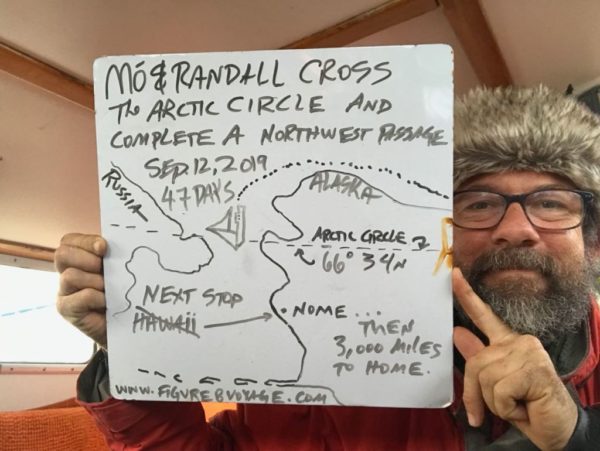 MÓ & RANDALL CROSS
The ARCTIC CIRCLE AND
COMPLETE A NORTHWEST PASSAGE
SEP. 12, 2019
47 DAYS
RUSSIA
ALASKA
ARCTIC CIRCLE
66° 34N
NEXT STOP
HAWAII
NOME ...
THEN
3,000 MILES
TO HOME.
WWW.FIGURE8VOYAGE.COM